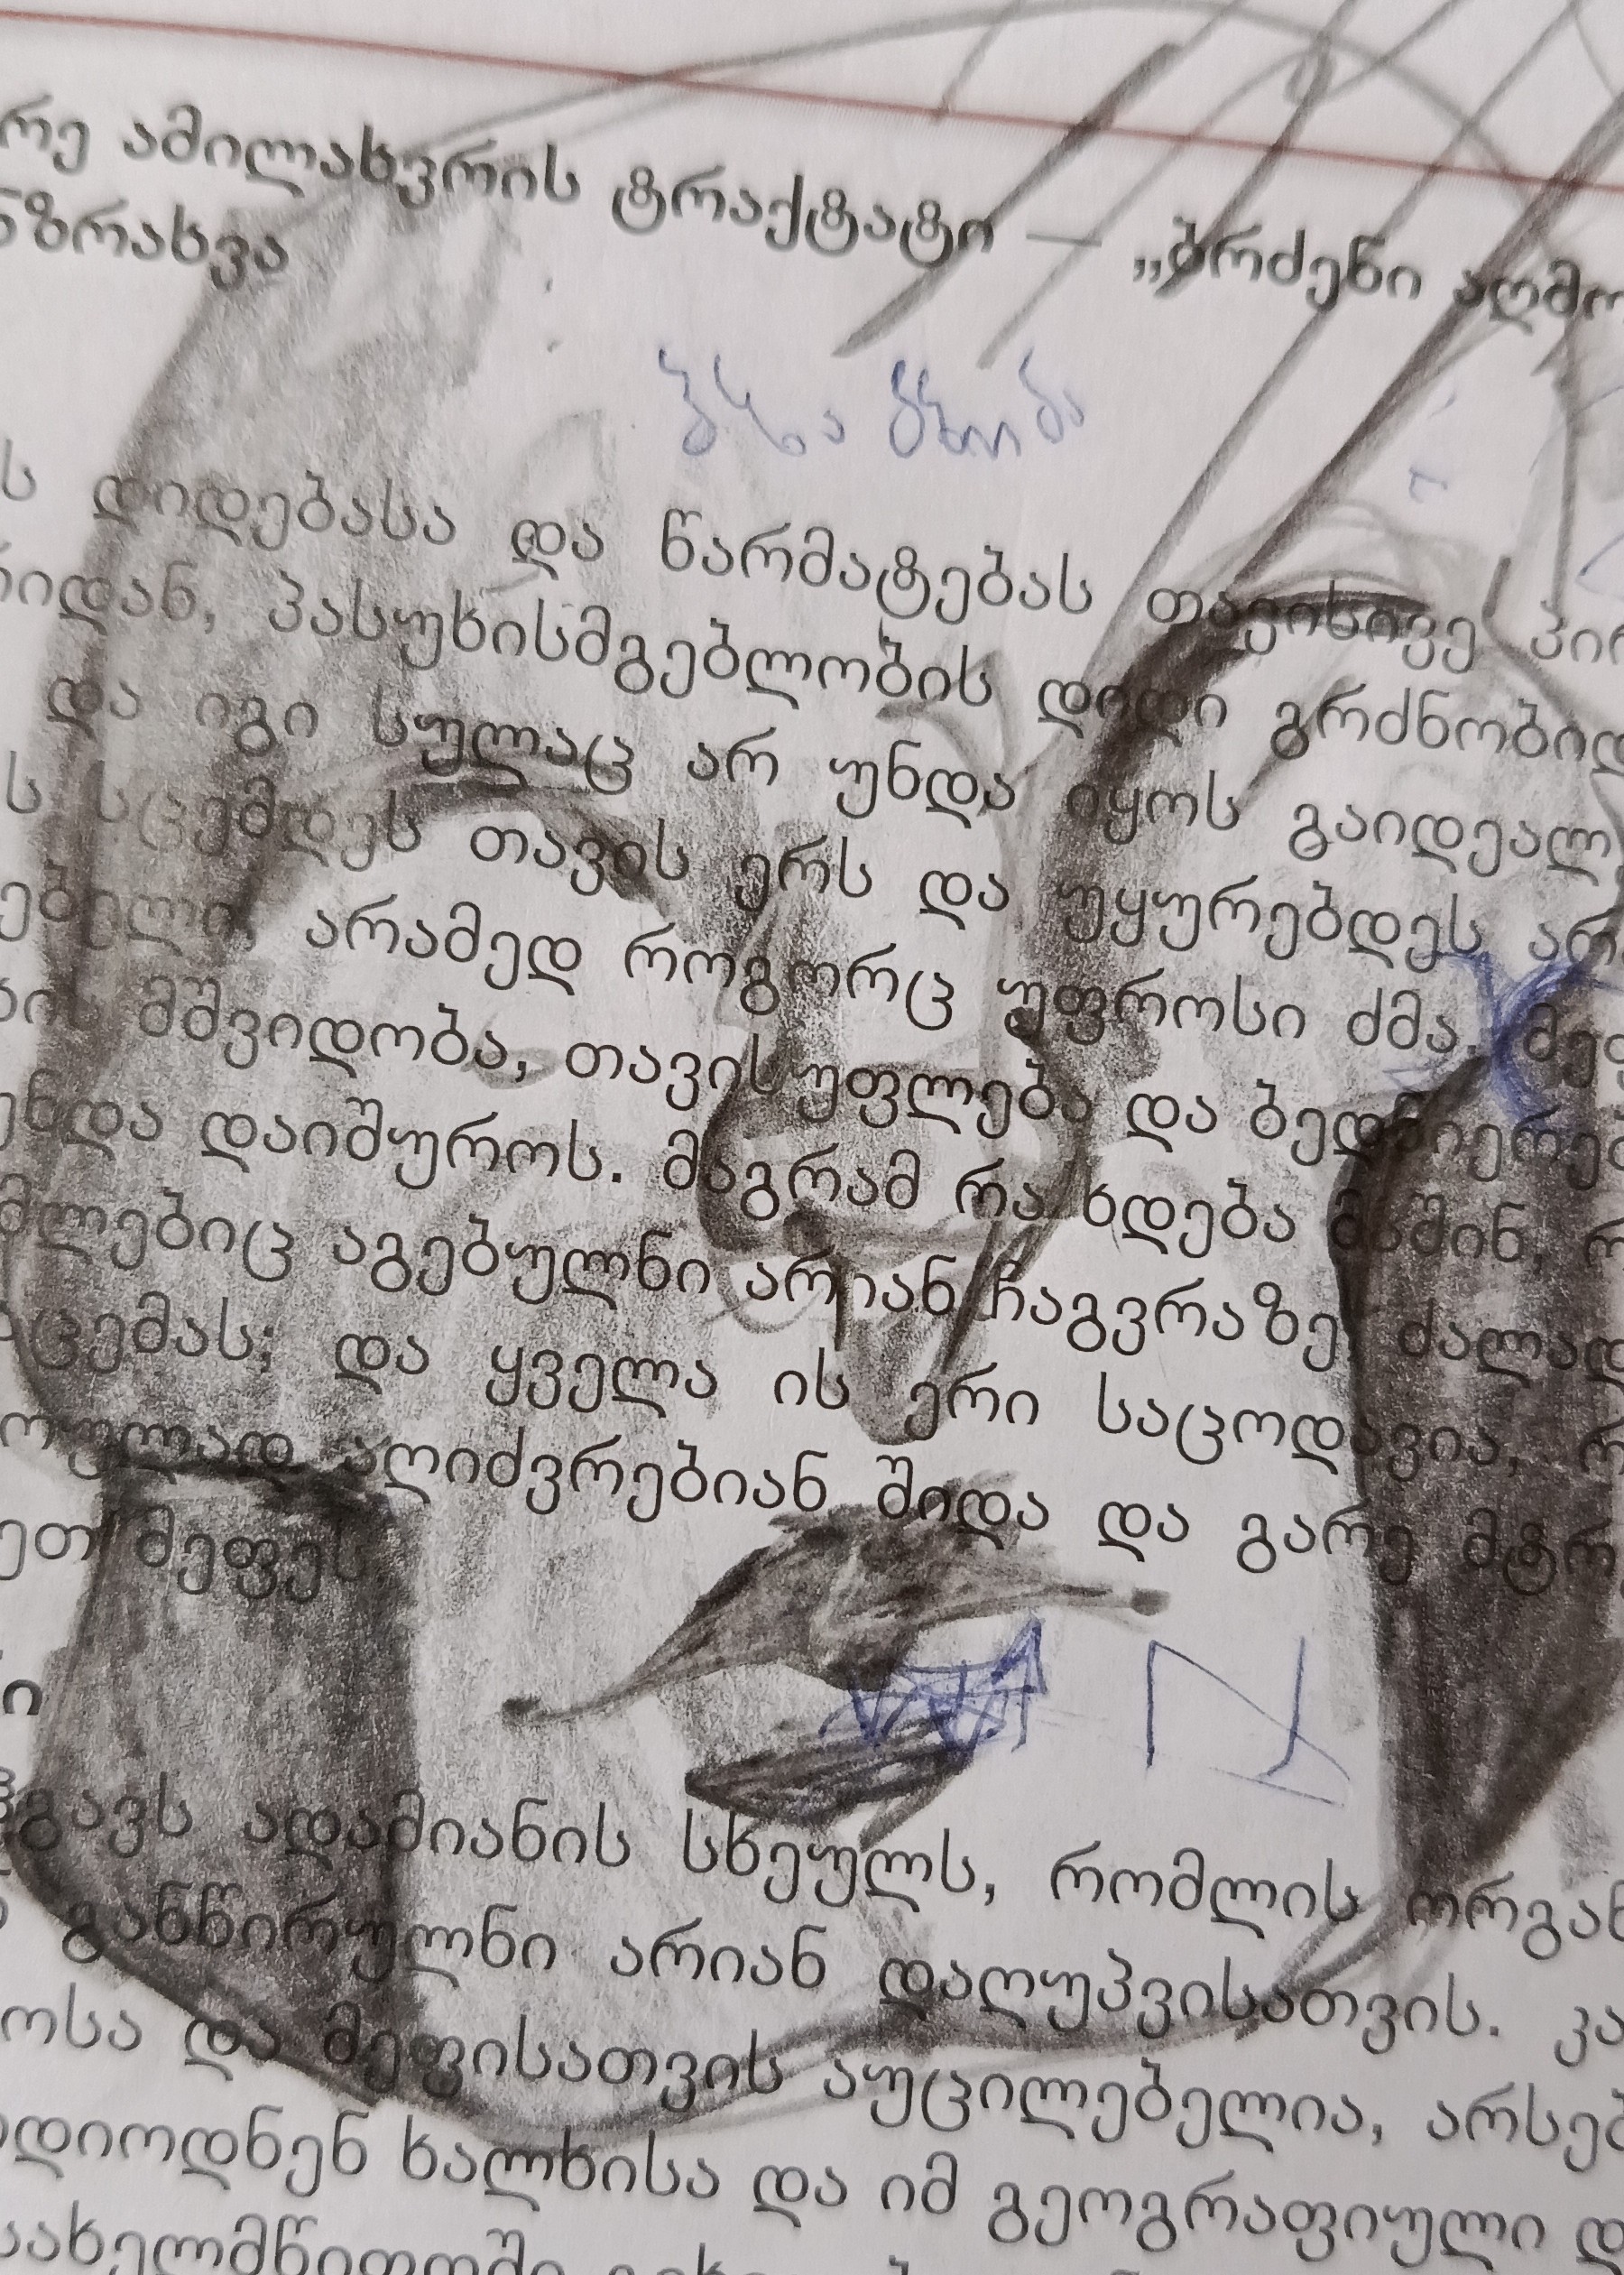 რე ამილახვრის ტრაქტატი — „ბრძენი აღმო
ნზრახვა
ს დიდებასა და წარმატებას თავისივე პირ
რიდან, პასუხისმგებლობის დიდი გრძნობიდ
და იგი სულაც არ უნდა იყოს გაიდეალ
ს სცემდეს თავის ერს და უყურებდეს არ
ებელი არამედ როგორც უფროსი ძმა. მეფ
ის მშვიდობა, თავისუფლება და ბედნიერე
უნდა დაიშუროს. მაგრამ რა ხდება მაშინ, რ
მლებიც აგებულნი არიან ჩაგვრაზე, ძალად
ცემას; და ყველა ის ერი საცოდავია, რ
ოფლად აღიძვრებიან შიდა და გარე მტრ
ეთ მეფეს
ი
ჰგავს ადამიანის სხეულს, რომლის ორგან
განწირულნი არიან დაღუპვისათვის. კა
ოსა და მეფისათვის აუცილებელია, არსებ
დიოდნენ ხალხისა და იმ გეოგრაფიული დ